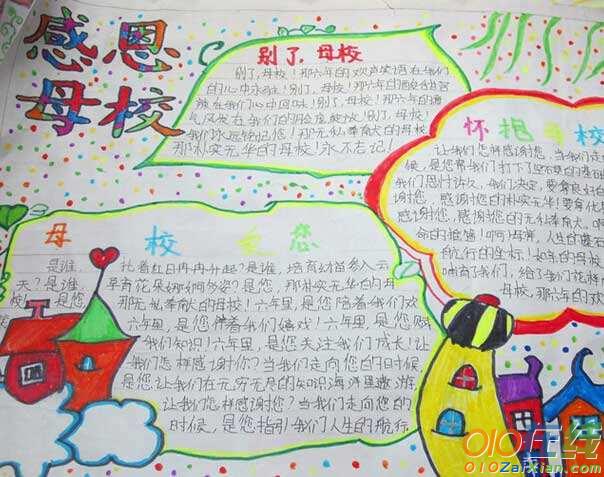 感恩
母校
别了，母校
别了，母校！那六年的欢声笑语在我们
的心中永驻！别了，母校！那六年的
在我们心中回味！别了，母校！那六年的
在我们的 绽放！别了，母校！
我们永远铭记您！那无私奉育的母校，
那朴实无华的母校！永不忘记！
怀抱母校
让我们怎样感谢您，当我们走
候，是您帮我们打下了坚不
我们思归许久，我们决定，要拿
感谢您，感谢您的朴实无华！要拿
感谢您，感谢您的无私奉育大。啊
命的摇篮！啊！母亲，人生的
自航行的坐标！如
哺育我们，给了我们花样
母校，那六年的
母校是您
是谁，托着红日冉冉升起？是谁，培育幼苗参入云
天？是谁 育花朵婀娜多姿？是您，那朴实无华的母
校！ 是您 那无私奉献大的母校！六年里，是您陪着我们欢
六年里，是您伴着我们嬉戏！六年里，是您赋
我们知识！六年里，是您关注我们成长！让
我们怎样感谢你？当我们走向您的时候，
是您，让我们在无穷无尽的知识海洋里遨游，
让我们怎样感谢您？当我们走向您的
时候，是您指引我们人生的航行
010在线
010Zaixian.com